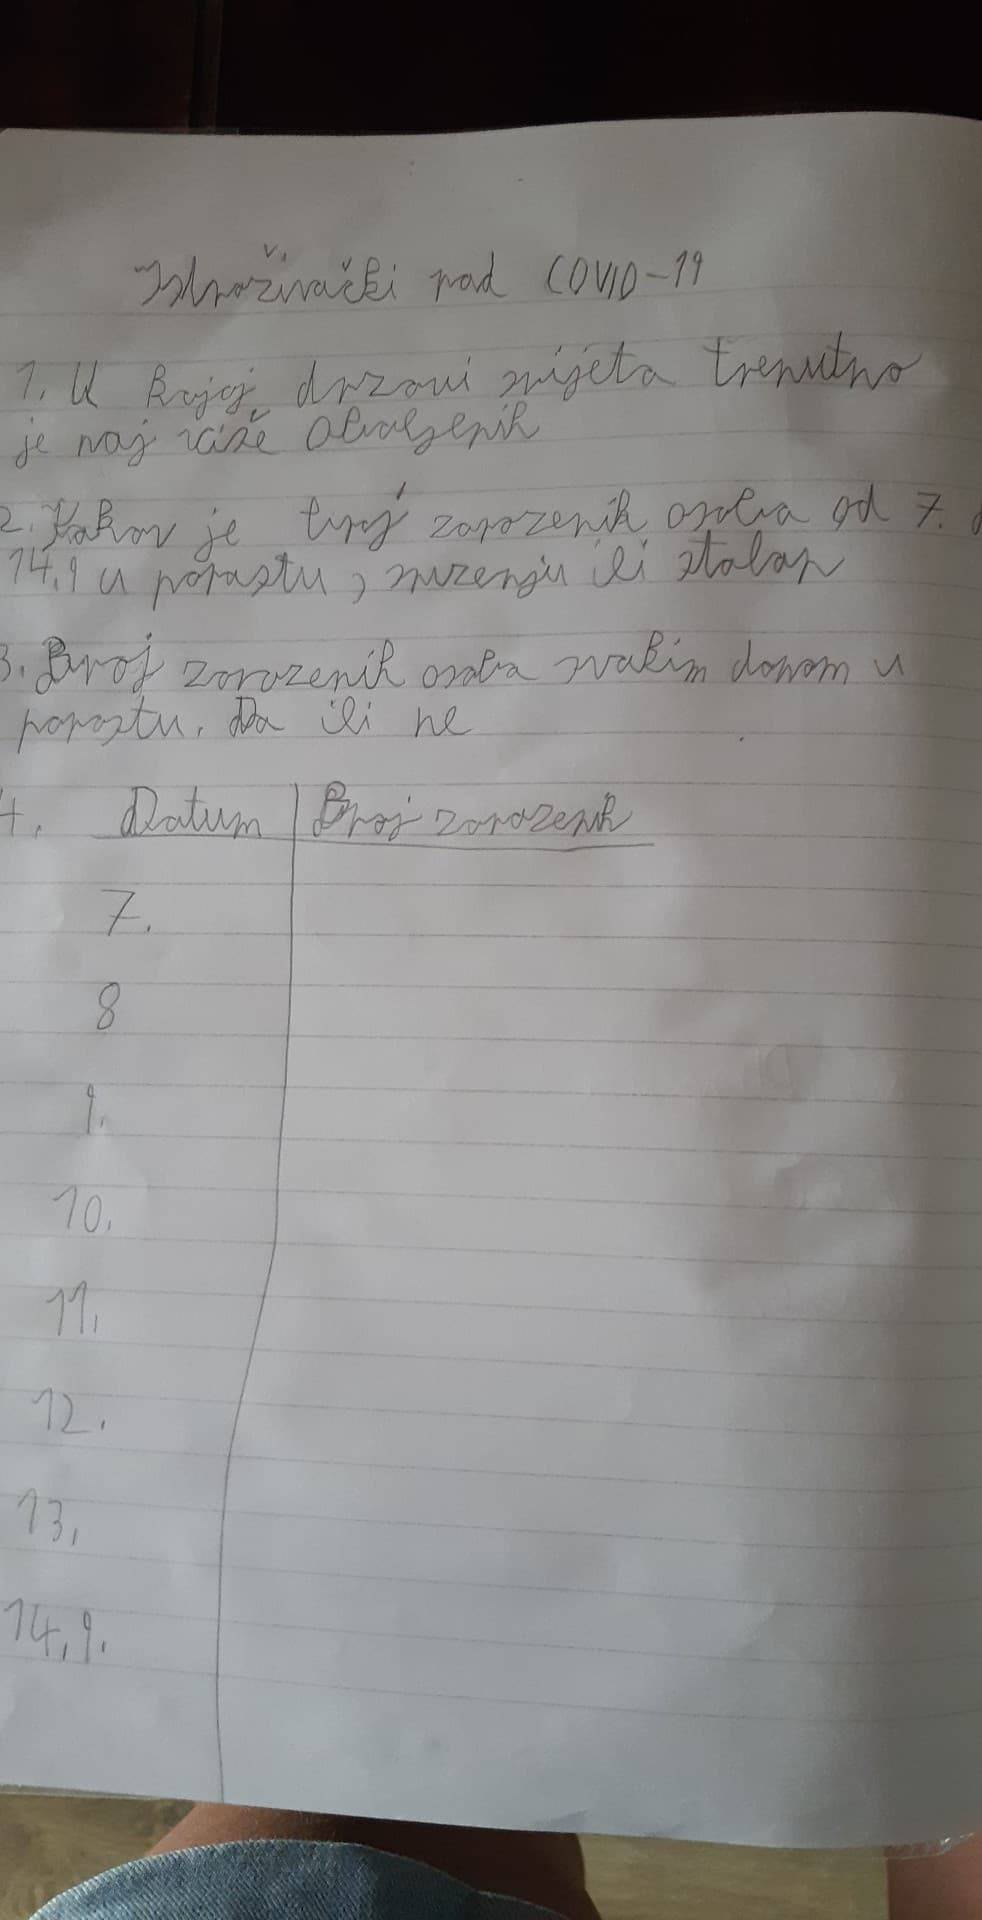 Istraživački rad COVID-19
1. U kojoj drzavi svijeta trenutno
je naj više oboljenih
2. Kakav je broj zarozenih osoba od 7.
14.9 u porastu, snizenju ili stalan
3. Broj zarazenih osoba svakim danom u
porastu. Da ili ne
4. Datum Broj zarazenih
7.
8
9.
10.
11.
12.
13.
14.9.